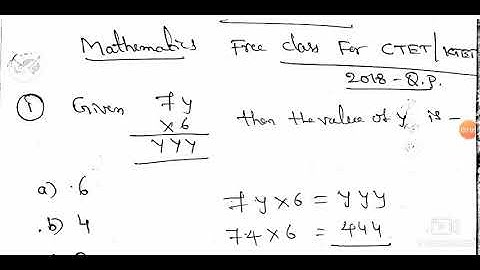 Mathematics Free class For CTET/KTET
2018 - Q.p.
① Given 7y
×6
yyy
then the value of y is -
a) .6
.b) 4
7y×6 = yyy
74×6 = 444